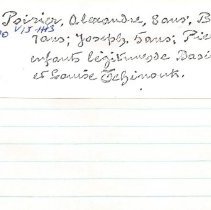 Poirier, Alexandre, 8ans, B
7ans; Joseph, 5ans; Pie
enfants légitimes de Basi
et Louise Tchinouk.